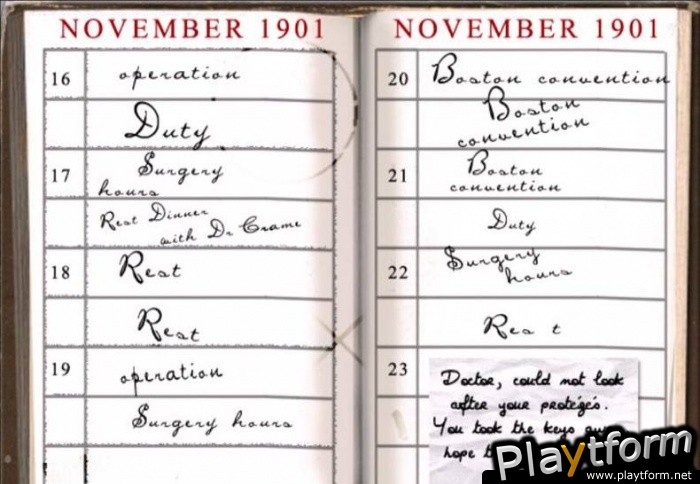 NOVEMBER 1901
16 operation
Duty
17 Surgery
hours
Rest Dinner
with Dr Crame
18 Rest
Rest
19 operation
Surgery hours
NOVEMBER 1901
20 Boston convention
Boston
convention
21 Boston
convention
Duty
22 Surgery
hours
Rest
23
Doctor, could not look
after your protégés.
You took the keys
hope
Playtform
www.playtform.net